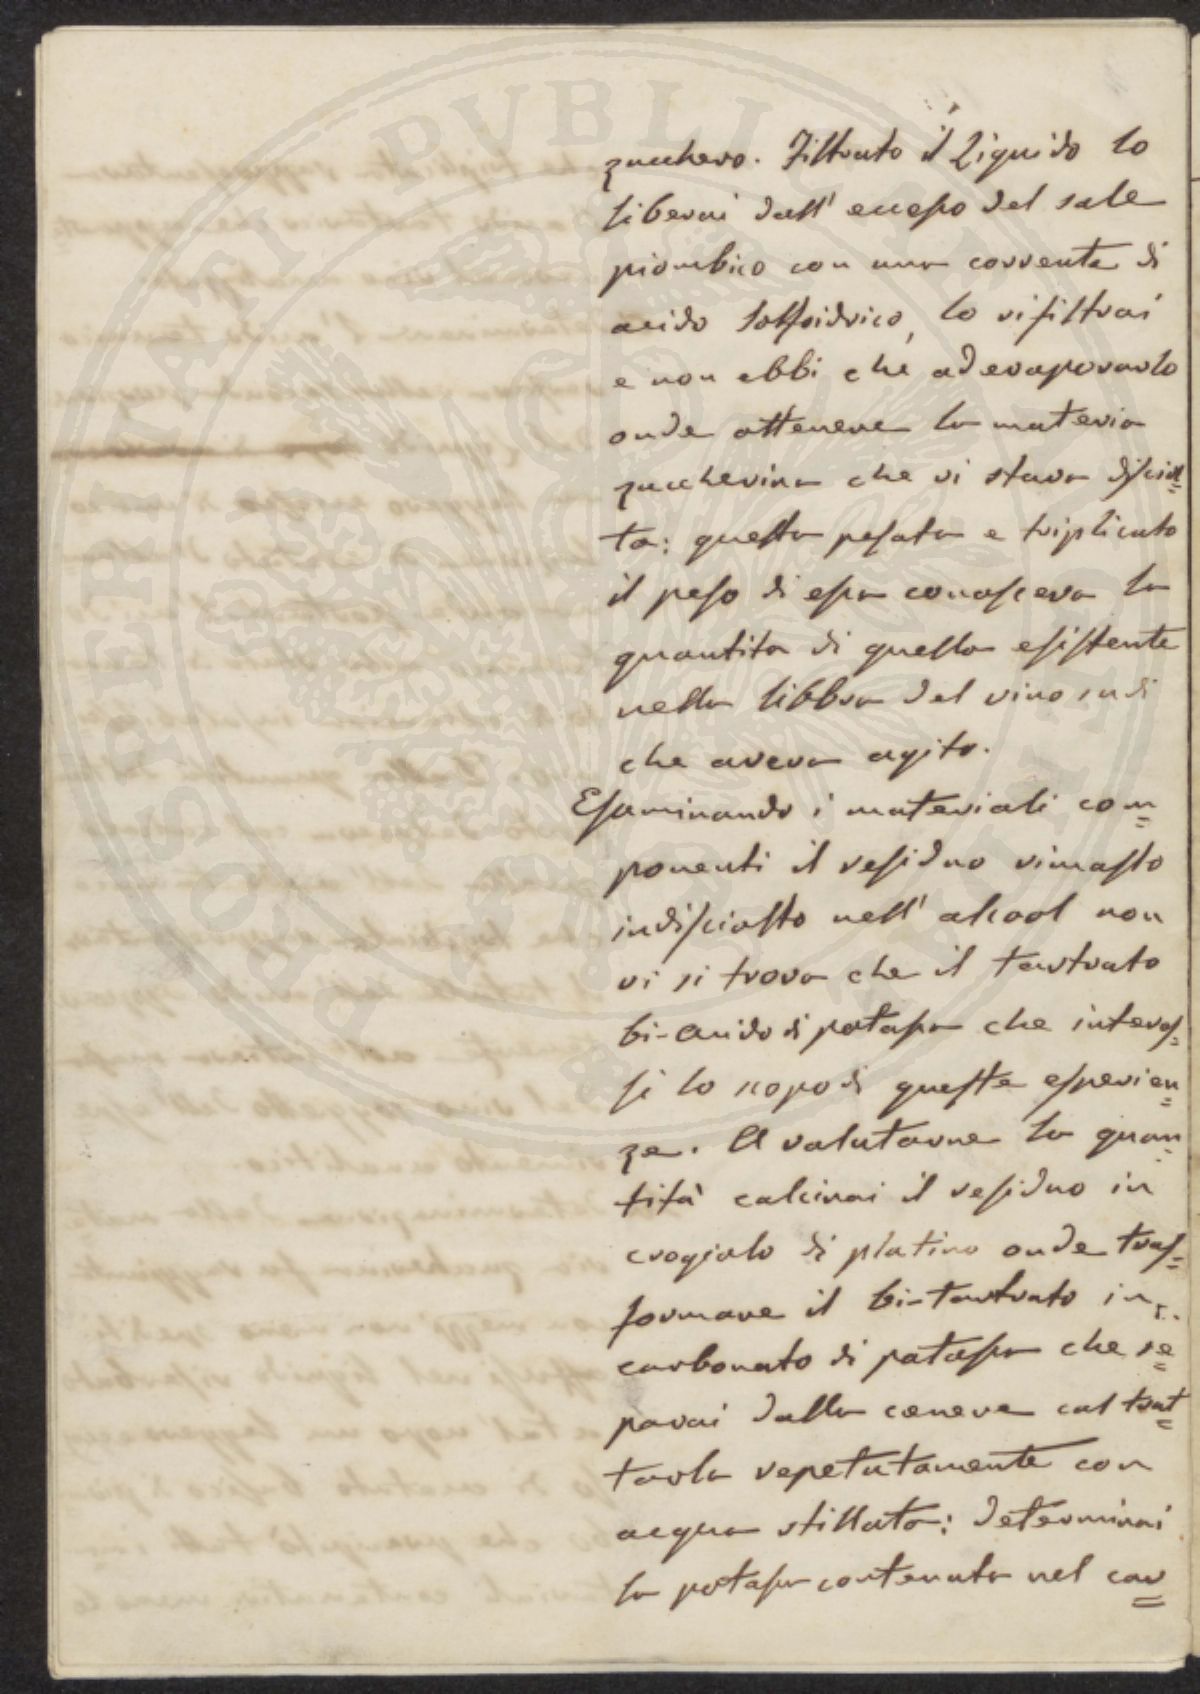 zucchero. Filtrato il liquido lo
liberai dall' eccesso del sale
piombico con una corrente di
acido solfoidrico, lo rifiltrai
e non ebbi che ad evaporarlo
onde ottenere la materia
zuccherina che vi stava disciol=
ta: questa pesata e triplicato
il peso di essa conosceva la
quantita di quella esistente
nella libbra del vino su di
che aveva agito.
Esaminando i materiali com=
ponenti il residuo rimasto
indisciolto nell' alcool non
vi si trova che il tartrato
bi-acido di potassa che interes=
si lo scopo di queste esperien=
ze. A valutarne la quan=
tità calcinai il residuo in
crogiolo di platino onde tras=
formare il bi-tartrato in
carbonato di potassa che se=
parai dalla cenere col trat=
tarla repetutamente con
acqua stillata: determinai
la potassa contenuta nel car=
PROSPERITATI PUBLICAE